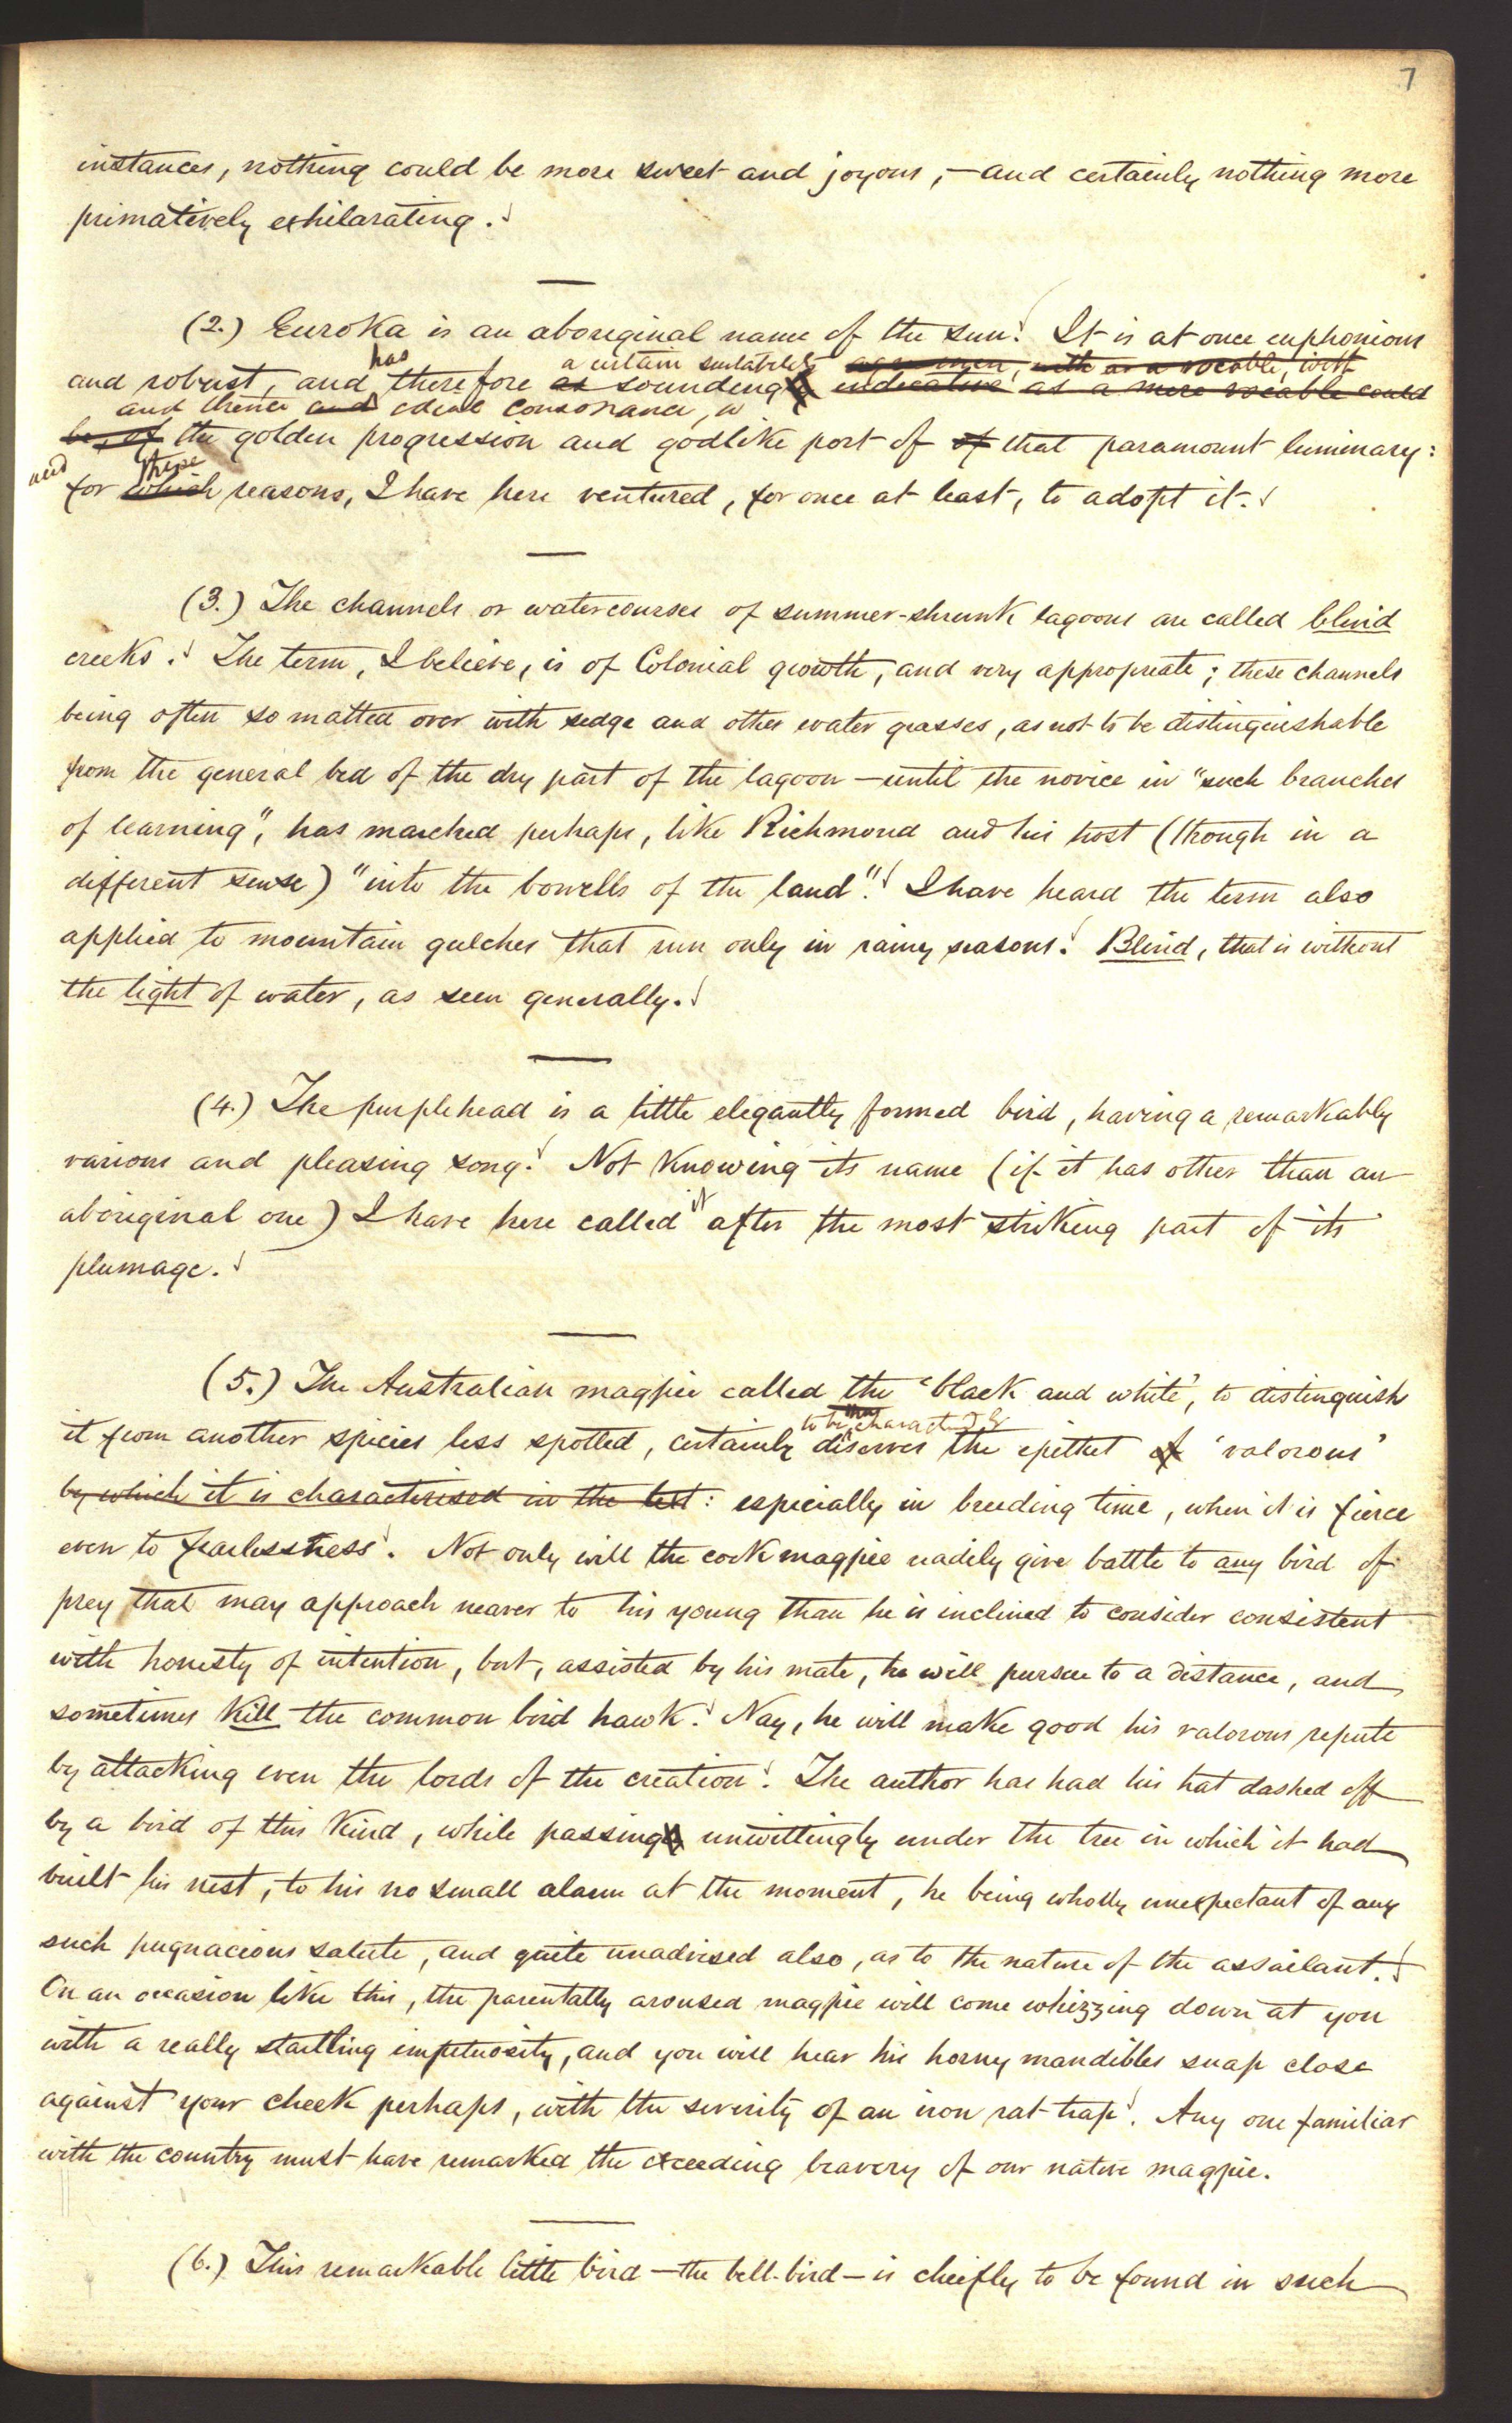 7
instances, nothing could be more sweet and joyous, — and certainly nothing more
primatively exhilarating.
(2.) Euroka is an aboriginal name of the sun. It is at once euphonious
has a certain suitability as a mere, with as a vocable, with
and robust, and therefore as soundingly indicative as a mere vocable could
and thence and ideal consonance, w
be, of the golden progression and godlike port of of that paramount luminary:
and these
for which reasons, I have here ventured, for once at least, to adopt it.
(3.) The channels or watercourses of summer-shrunk lagoons are called blind
creeks. The term, I believe, is of Colonial growth, and very appropriate; these channels
being often so matted over with sedge and other water grasses, as not to be distinguishable
from the general bed of the dry part of the lagoon — until the novice in "such branches
of learning", has marched perhaps, like Richmond and his host (though in a
different sense) "into the bowells of the land". I have heard the term also
applied to mountain gulches that run only in rainy seasons. Blind, that is without
the light of water, as seen generally.
(4.) The purplehead is a little elegantly formed bird, having a remarkably
various and pleasing song. Not knowing its name (if it has other than an
aboriginal one) I have here called it after the most striking part of its
plumage.
(5.) The Australian magpie called the 'black and white', to distinguish
to be characterized by
it from another species less spotted, certainly diserves the epithet of 'valorous'
by which it is characterised in the text: especially in breeding time, when it is fierce
even to fearlessness. Not only will the cock magpie readily give battle to any bird of
prey that may approach nearer to his young than he is inclined to consider consistent
with honesty of intention, but, assisted by his mate, he will pursue to a distance, and
sometimes kill the common bird hawk. Nay, he will make good his valorous repute
by attacking even the lords of the creation. The author has had his hat dashed off
by a bird of this kind, while passing unwittingly under the tree in which it had
built his nest, to his no small alarm at the moment, he being wholly unexpectant of any
such pugnacious salute, and quite unadvised also, as to the nature of the assailant.
On an occasion like this, the parentally aroused magpie will come whizzing down at you
with a really startling impetuosity, and you will hear his horny mandibles snap close
against your cheek perhaps, with the severity of an iron rat-trap. Any one familiar
with the country must have remarked the exceeding bravery of our native magpie.
(6.) This remarkable little bird — the bell-bird — is cheifly to be found in such